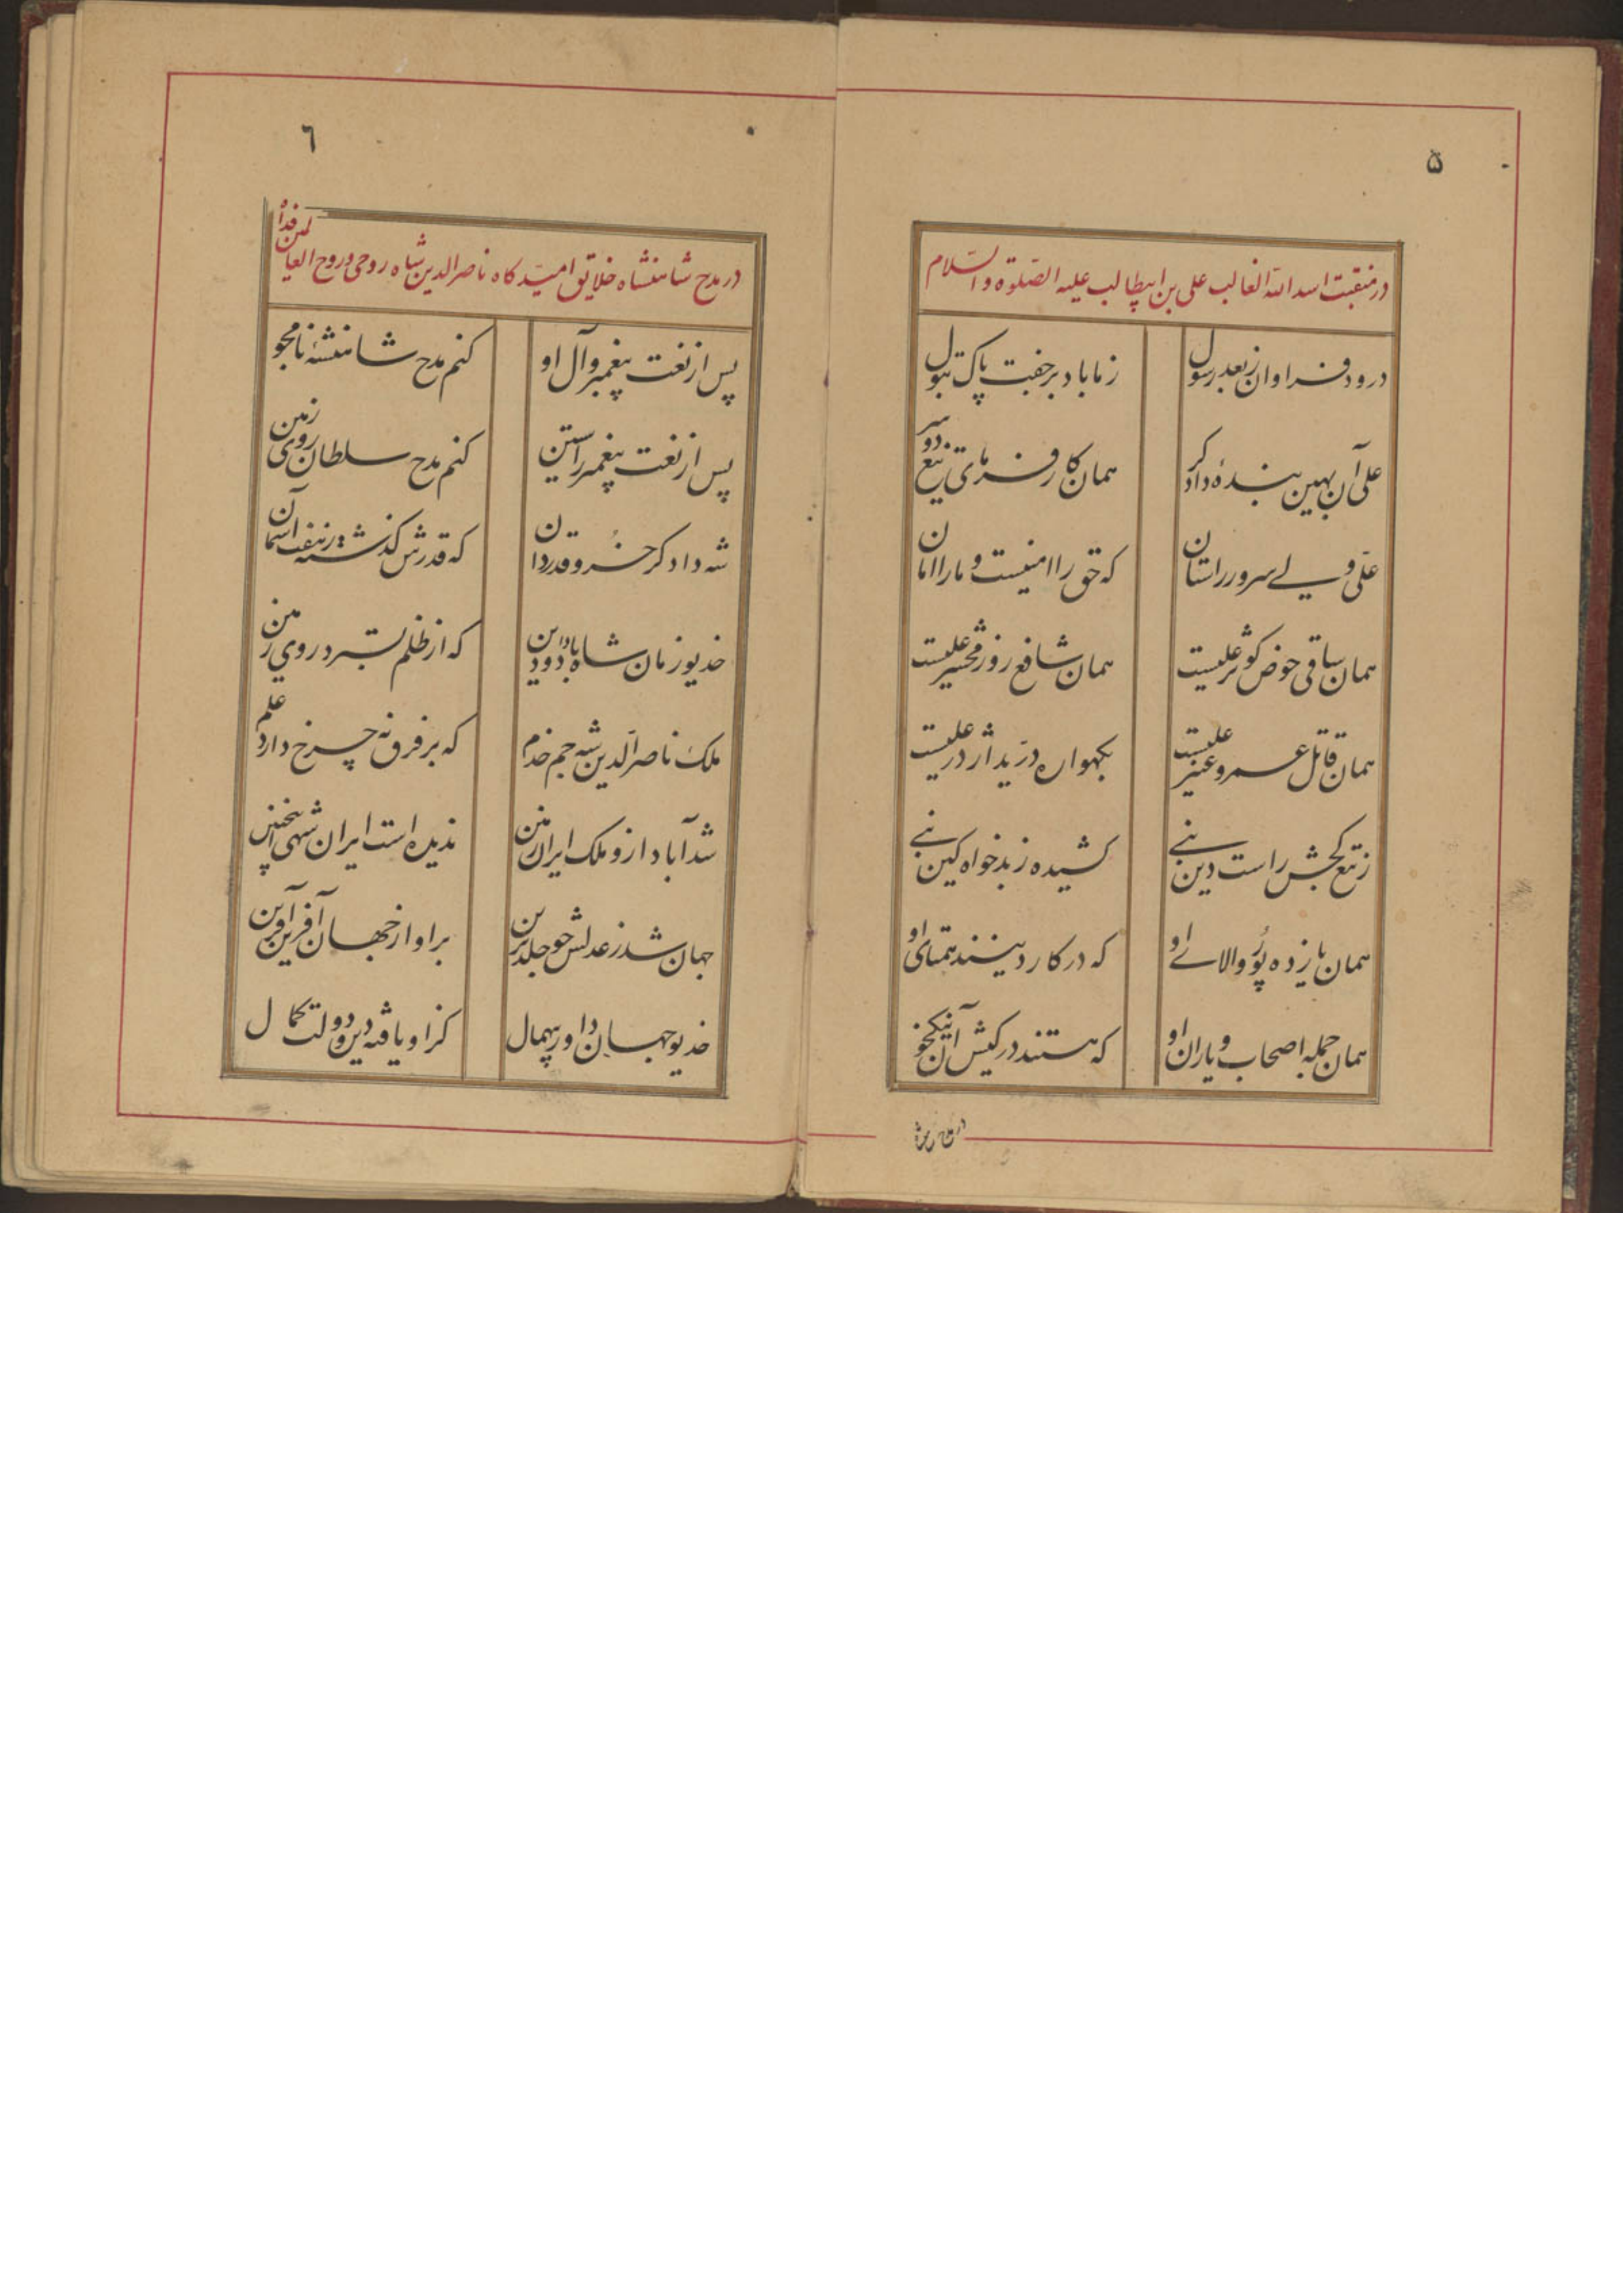 ۵
در منقبت اسد الله الغالب علی بن ابیطالب علیه الصّلوة والسّلام
درود فراوان ز بعد رسول ز ما باد بر جفت پاک بتول
علی آن بهین بندهٔ دادگر همان کارفرمای تیغ دو سر
علی ولی سرور راستان که حق را امینست و ما را امان
همان ساقی حوض کوثر علیست همان شافع روز محشر علیست
همان قاتل عمرو عنتر علیست بگهواره درّید اژدر علیست
ز تیغ کجش راست دین نبی کشیده ز بدخواه کین نبی
همان یازده پُور والای او که در کار دینند همتای او
همان جمله اصحاب و یاران او که هستند در کیش آن نیکخو
در مدح
٦
در مدح شاهنشاه خلایق امیدگاه ناصرالدین شاه روحی و روح العالمین فداه
پس از نعت پیغمبر و آل او کنم مدح شاهنشه نامجو
پس از نعت پیغمبر راستین کنم مدح سلطان روی زمین
شه دادگر خسرو قدردان که قدرش گذشته ز هفت آسمان
خدیو زمان شاه با داد و دین که از ظلم بسترد روی زمین
ملک ناصرالدّین شه جم خدم که بر فرق نه چرخ دارد علم
شد آباد ازو ملک ایران زمین ندیده است ایران شهی اینچنین
جهان شد ز عدلش چو خلد برین بر او از جهان آفرین آفرین
خدیو جهان داور بیهمال کز او یافته دین و دولت کمال